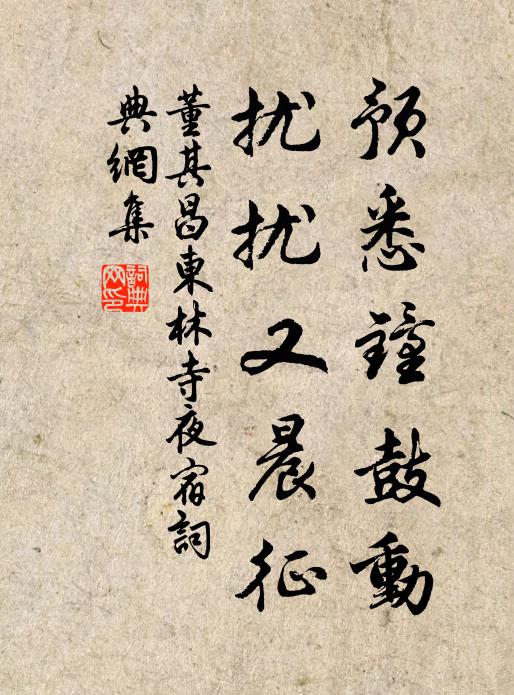 预悉鐘鼓動
扰扰又晨征
董其昌東林寺夜宿詞
典網集
詞典網印